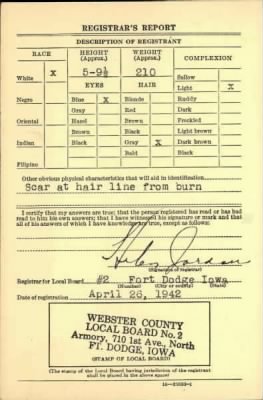 REGISTRAR'S REPORT
DESCRIPTION OF REGISTRANT
RACE HEIGHT (Approx.) WEIGHT (Approx.) COMPLEXION
White X 5-9½ 210 Sallow
EYES HAIR Light X
Negro Blue X Blonde Ruddy
Gray Red Dark
Oriental Hazel Brown Freckled
Brown Black Light brown
Indian Black Gray X Dark brown
Bald Black
Filipino
Other obvious physical characteristics that will aid in identification
Scar at hair line from burn
I certify that my answers are true; that the person registered has read or has had
read to him his own answers; that I have witnessed his signature or mark and that
all of his answers of which I have knowledge are true, except as follows:
(Signature of registrar)
Registrar for Local Board #2 Fort Dodge Iowa
(Number) (City or county) (State)
Date of registration April 26, 1942
WEBSTER COUNTY
LOCAL BOARD No. 2
Armory, 710 1st Ave., North
FT. DODGE, IOWA
(STAMP OF LOCAL BOARD)
(The stamp of the Local Board having jurisdiction of the registrant
shall be placed in the above space)